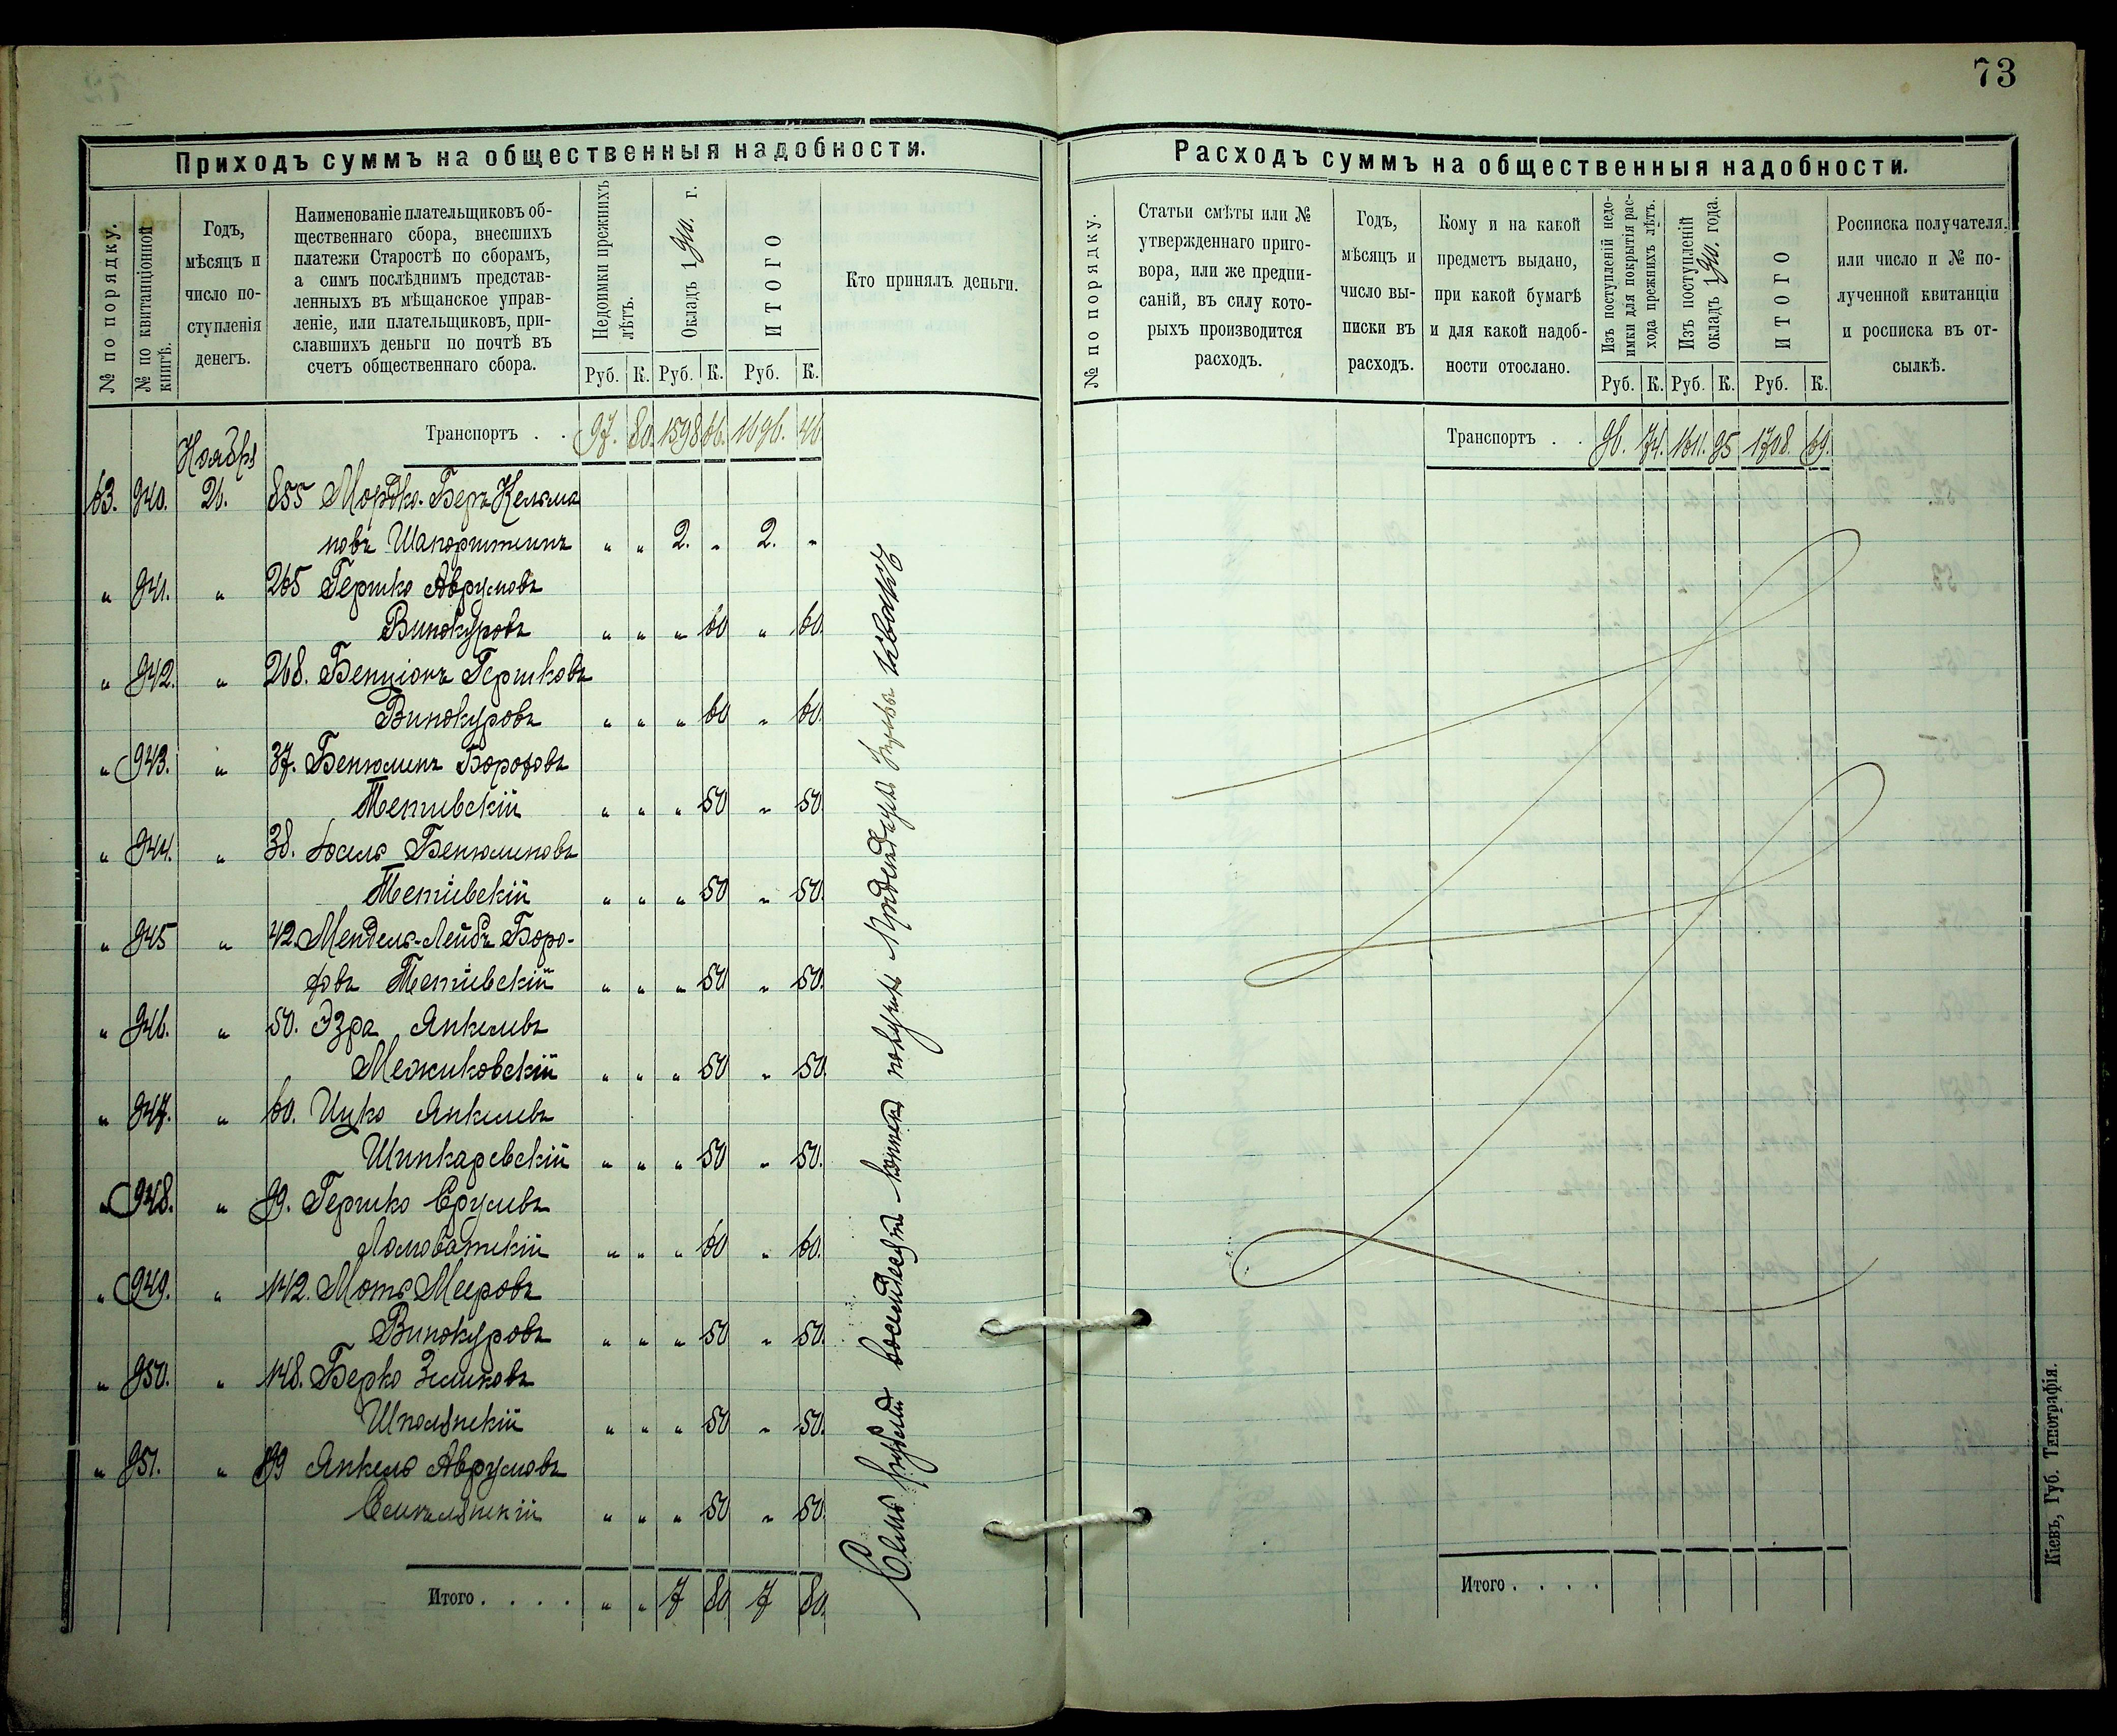 73
Приходъ суммъ на общественныя надобности.
№ по порядку.
№ по квитанціонной книгѣ.
Годъ,
мѣсяцъ и
число по-
ступленія
денегъ.
Наименованіе плательщиковъ об-
щественнаго сбора, внесшихъ
платежи Старостѣ по сборамъ,
а симъ послѣднимъ представ-
ленныхъ въ мѣщанское управ-
леніе, или плательщиковъ, при-
славшихъ деньги по почтѣ въ
счетъ общественнаго сбора.
Недоимки прежнихъ
лѣтъ.
Окладъ 1 г.
ИТОГО
Руб. К. Руб. К. Руб. К.
Кто принялъ деньги.
Транспортъ . . 97. 80. 1598 66. 1696. 46
Ноября
63. 940. 26. 855 Мордко-Беръ Кельма
новъ Шапорштинъ " " 2. " 2. "
" 941. " 265 Гершко Аврумовъ
Винокуровъ " " " 60 " 60.
" 942. " 268. Бенціонъ Гершковъ
Винокуровъ " " " 60 " 60.
" 943. " 37. Беньюминъ Бороховъ
Тетіевскій " " " 50 " 50.
" 944. " 38. Беньюминовъ
Тетіевскій " " " 50 " 50.
" 945 " 42. Мендель-Лейбъ Боро-
ховъ Тетіевскій " " " 50 " 50.
" 946. " 50. Эзра Янкелевъ
Межиховскій " " " 50 " 50.
" 947. " 60. Ицко Янкелевъ
Шинкаревскій " " " 50 " 50.
" 948. " 99. Гершко Срулевъ
Ломоватскій " " " 60 " 60.
" 949. " 142. Моть Мееровъ
Винокуровъ " " " 50 " 50.
" 950. " 148. Берко Зельковъ
Шполянскій " " " 50 " 50.
" 951. " 199 Янкель Аврумовъ
" " " 50 " 50.
Итого . . . . " " 7 80 7 80.
Семь рублей восемьдесят копеек получилъ
Расходъ суммъ на общественныя надобности.
№ по порядку.
Статьи смѣты или №
утвержденнаго приго-
вора, или же предпи-
саній, въ силу кото-
рыхъ производится
расходъ.
Годъ,
мѣсяцъ и
число вы-
писки въ
расходъ.
Кому и на какой
предметъ выдано,
при какой бумагѣ
и для какой надоб-
ности отослано.
Изъ поступленій недо-
имки для покрытія рас-
хода прежнихъ лѣтъ.
Изъ поступленій
окладъ 1 года.
ИТОГО
Руб. К. Руб. К. Руб. К.
Росписка получателя,
или число и № по-
лученной квитанціи
и росписка въ от-
сылкѣ.
Транспортъ . . 96. 74. 1611. 95 1708. 69.
Итого . . . .
Кіевъ, Губ. Типографія.